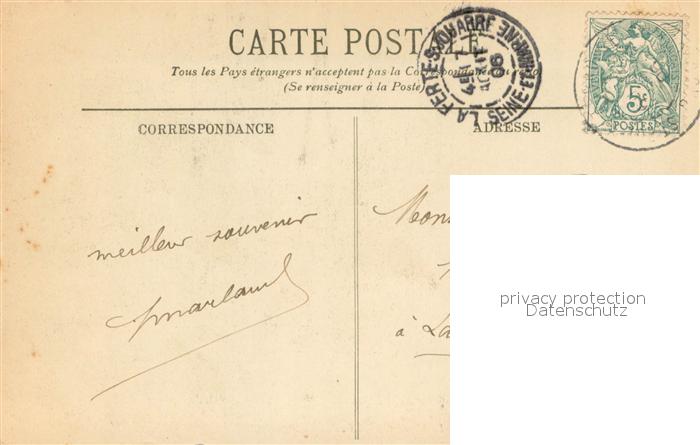 CARTE POSTALE
Tous les Pays étrangers n'acceptent pas la Correspondance au recto
(Se renseigner à la Poste)
LA FERTE-S-JOUARRE SEINE-ET-MARNE
06
CORRESPONDANCE
ADRESSE
5c
POSTES
meilleur souvenir
Mons
à La
privacy protection
Datenschutz